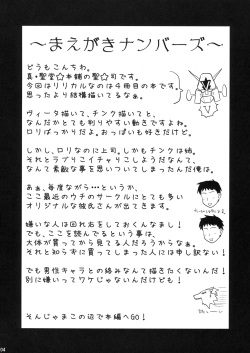 ～まえがきナンバーズ～
どうもこんちわ。
真・聖堂☆本舗の聖☆司です。
今回はリリカルなのは４冊目の本です。
思ったより結構描いてるなぁ。
ヴィータ描いて、チンク描いてと、
なんだかとても判りやすい動きですな。
ロリばっかりだよ。おっぱいも好きだけど。
しかし、ロリなのに上司。しかもチンク は姉。
それとラブリこイチャりこしようだなんて、
なんて素敵な事を思いついてしまったんだ俺は。
あぁ、毎度ながら…というか、
ここ最近のウチのサークルにとても多い
オリジナルな彼氏さんが出てきます。
嫌いな人は回れ右をしておくんなまし！
でも、ここを読んでるという事は、
大体が買ってから見てる人だろうからなぁ。
それと知らずに買ってしまった人には申し訳ない！
でも男性キャラとの絡みなんて描きたくないんだ！
別に嫌いって訳でもないけど！
そんじゃまこの辺で本編へGO！
04